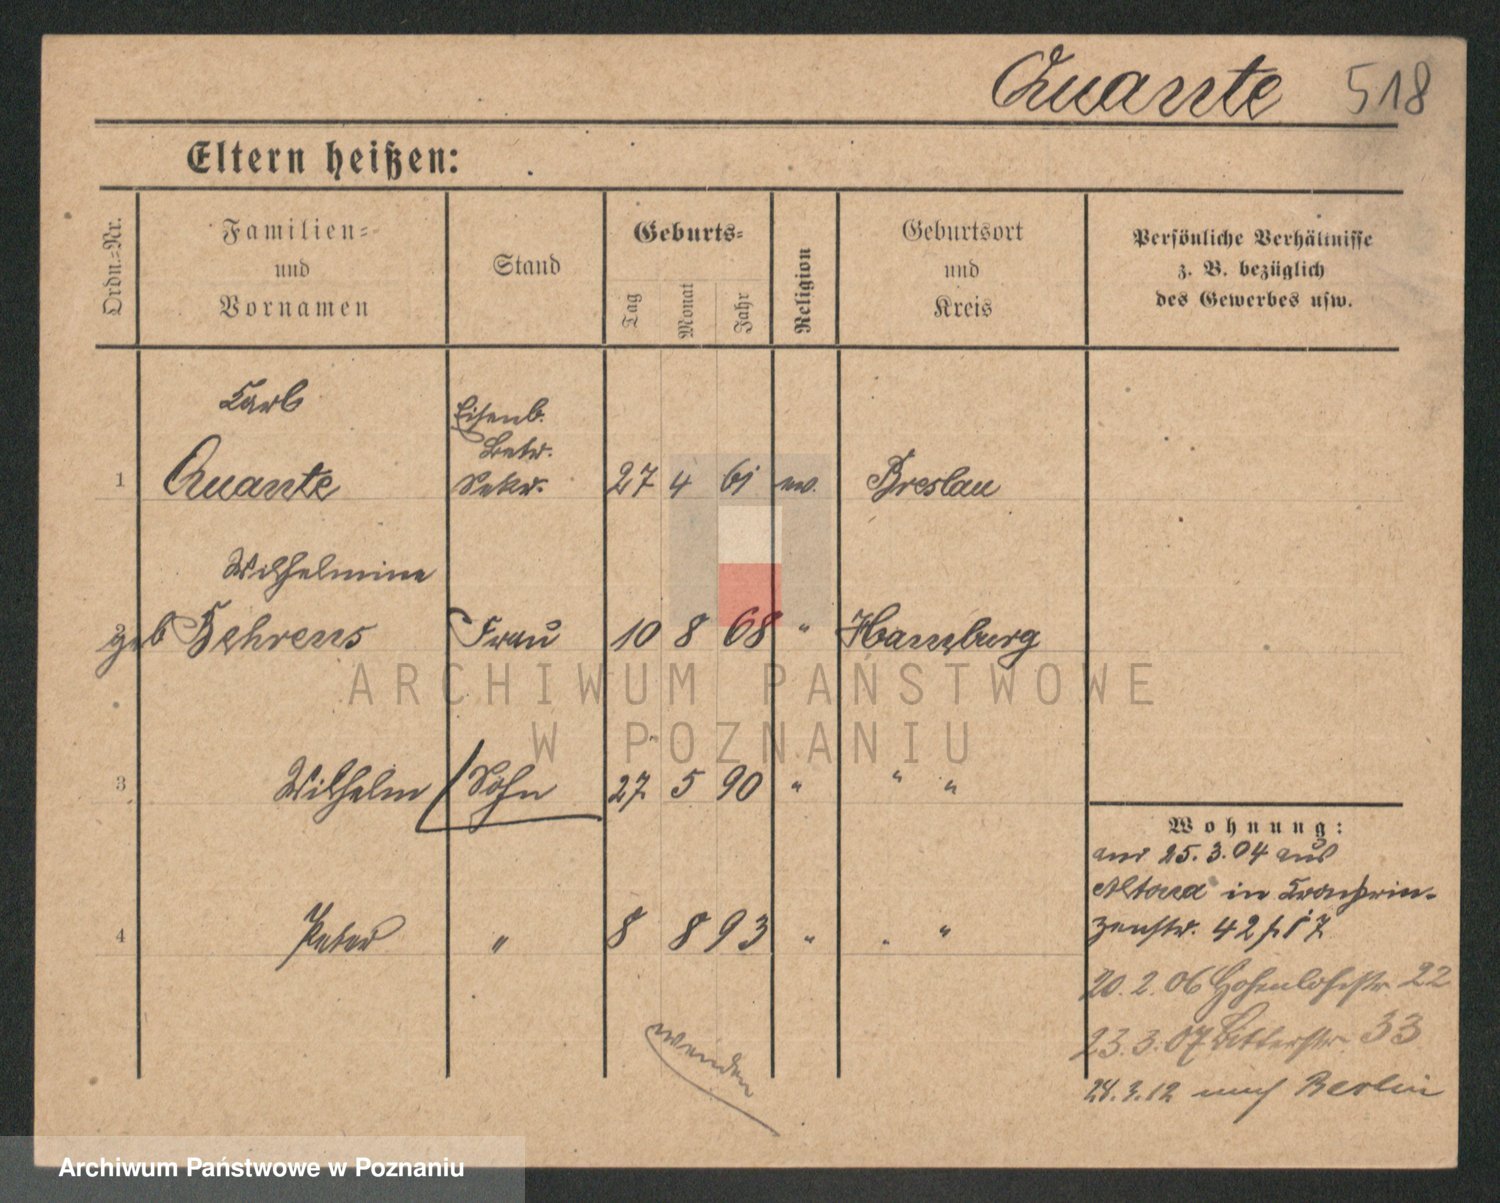 Quante 518
Eltern heißen:
Ordn.=Nr.
Familien=
und
Vornamen
Stand
Geburts=
Tag
Monat
Jahr
Religion
Geburtsort
und
Kreis
Persönliche Verhältnisse
z. B. bezüglich
des Gewerbes usw.
Carl
Eisenb.
Betr.
1 Quante Sekr. 27 4 61 ev. Breslau
Wilhelmine
2 geb Behrens Frau 10 8 68 " Hamburg
3 Wilhelm Sohn 27. 5 90 " " "
4 Peter " 8 8 93 " " "
Wohnung:
25. 3. 04 aus
Altona in Kronprin-
zenstr. 42
20. 2. 06 Hohenlohestr 22
23. 3. 07 Ritterstr. 33
28. 3. 12 nach Berlin
wenden
ARCHIWUM PAŃSTWOWE
W POZNANIU
Archiwum Państwowe w Poznaniu